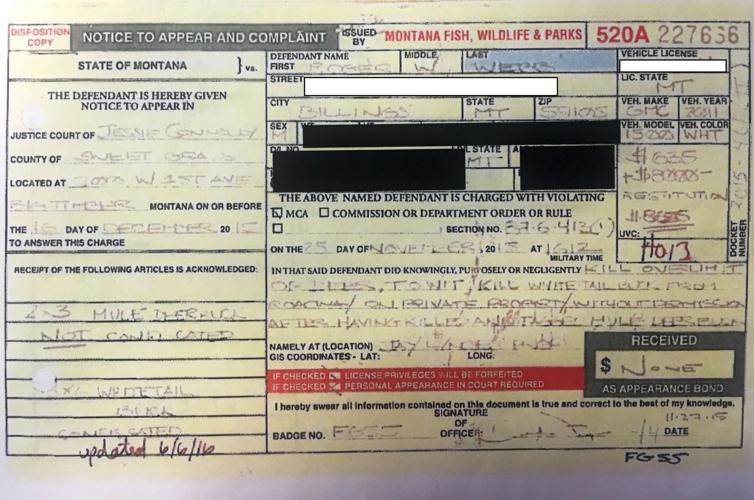 DISPOSITION COPY
NOTICE TO APPEAR AND COMPLAINT
ISSUED BY
MONTANA FISH, WILDLIFE & PARKS
520A 227636
STATE OF MONTANA } vs.
THE DEFENDANT IS HEREBY GIVEN
NOTICE TO APPEAR IN
JUSTICE COURT OF JESSIE CONNOLLY
COUNTY OF SWEET GRASS
LOCATED AT W/ 1ST AVE
BIG TIMBER MONTANA ON OR BEFORE
THE 16 DAY OF DECEMBER 2015
TO ANSWER THIS CHARGE
RECEIPT OF THE FOLLOWING ARTICLES IS ACKNOWLEDGED:
2x3 MULE DEER BUCK
NOT CONFISCATED
WHITETAIL
BUCK
CONFISCATED
updated 6/6/16
DEFENDANT NAME
FIRST MIDDLE LAST
W. WEBB
STREET
CITY STATE ZIP
BILLINGS MT
SEX
M
MT
VEHICLE LICENSE
LIC. STATE
MT
VEH. MAKE VEH. YEAR
GMC 2011
VEH. MODEL VEH. COLOR
WHT
$635
RESTITUTION
UVC:
DOCKET NUMBER
THE ABOVE NAMED DEFENDANT IS CHARGED WITH VIOLATING
MCA COMMISSION OR DEPARTMENT ORDER OR RULE
SECTION NO. 87-6-413(1)
ON THE 25 DAY OF NOVEMBER, 2015 AT 1612
MILITARY TIME
IN THAT SAID DEFENDANT DID KNOWINGLY, PURPOSELY OR NEGLIGENTLY KILL OVERLIMIT
OF DEER, TO WIT, KILL WHITETAIL BUCK FROM
ROADWAY/ ON PRIVATE PROPERTY/WITHOUT PERMISSION
AFTER HAVING KILLED AND MULE DEER BUCK
NAMELY AT (LOCATION)
GIS COORDINATES- LAT: LONG:
IF CHECKED LICENSE PRIVILEGES WILL BE FORFEITED
IF CHECKED PERSONAL APPEARANCE IN COURT REQUIRED
RECEIVED
$ NONE
AS APPEARANCE BOND
I hereby swear all information contained on this document is true and correct to the best of my knowledge.
SIGNATURE
OF
OFFICER
BADGE NO. FG55
11-27-15
DATE
FG55